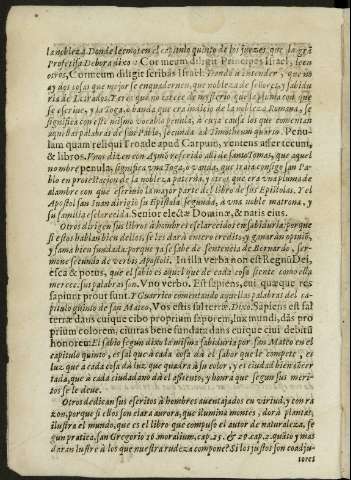 la nobleza. Donde leemos en el capitulo quinto de los juezes, que la grã
Profetisa Debora dixo: Cor meum diligit Principes Israel, leen
otros, Cor meum diligit scribas Israel. Dando à entender, que no
ay dos cosas que mejor se enquadernen, que nobleza de señores, y sabidu
ria de Letrados. Y creo que no carece de mysterio que la pluma con que
se escriue, y la Toga, ò banda que era indicio de la nobleza Romana, se
significa con este mismo vocablo penula, à cuya causa los que comentan
aquellas palabras de san Pablo, secunda ad Timotheum quarto. Penu-
lam quam reliqui Troade apud Carpum, veniens affer tecum,
& libros. Vnos dizen con Aymo referido alli de santo Tomas, que aquel
nombre penula, significa vna Toga, o vanda, que traia consigo san Pa
blo en protestacion de la nobleza paterna, y otros que era vna pluma de
alambre con que escriuio la mayor parte del libro de sus Epistolas. Y el
Apostol san Iuan dirigio su Epistola segunda, à vna noble matrona, y
su familia esclarecida. Senior electæ Dominæ, & natis eius.
Otros dirigen sus libros à hombres esclarecidos en sabiduria, porque
si estos hablan bien dellos, se les darà entero credito, y ganaràn opiniõ,
y fama bien fundada, porque ya se sabe de sentencia de Bernardo, ser-
mone secundo de verbis Apostoli. In illa verba non est Regnũ Dei,
esca & potus, que el sabio es aquel que de cada cosa siente como ella
merece, sus palabras son. Vno verbo. Est sapiens, cui quæque res
sapiunt prout sunt. Y Guarrico comentando aquellas palabras del ca-
pitulo quinto de san Mateo, Vos estis sal terræ. Dixo. Sapiens est sal
terræ dans cuique cibo proprium saporem, lux mundi, dãs pro
prium colorem, ciuitas bene fundata dans cuique ciui debitũ
honorem. El sabio segun dixo la misma sabiduria por san Mateo en el
capitulo quinto, es sal que à cada cosa dà el sabor que le compete, es
luz que à cada cosa dà luz, que quadra à su color, y es ciudad bien acer
tada, que à cada ciudadano dà el assiento, y honra que segun sus meri-
tos se le deue.
Otros dedican sus escritos à hombres auentajados en virtud, y con ra
zon, porque si ellos son clara aurora, que ilumina montes, dora plantas,
ilustra el mundo, que es el libro que compuso el autor de naturaleza, se
gun pratica, san Gregorio 16 moralium, cap. 25. & 29. cap. 2. quãto y mas
daràn lustre à los que nuestra rudeza compone? Si los justos son coadju-
tores